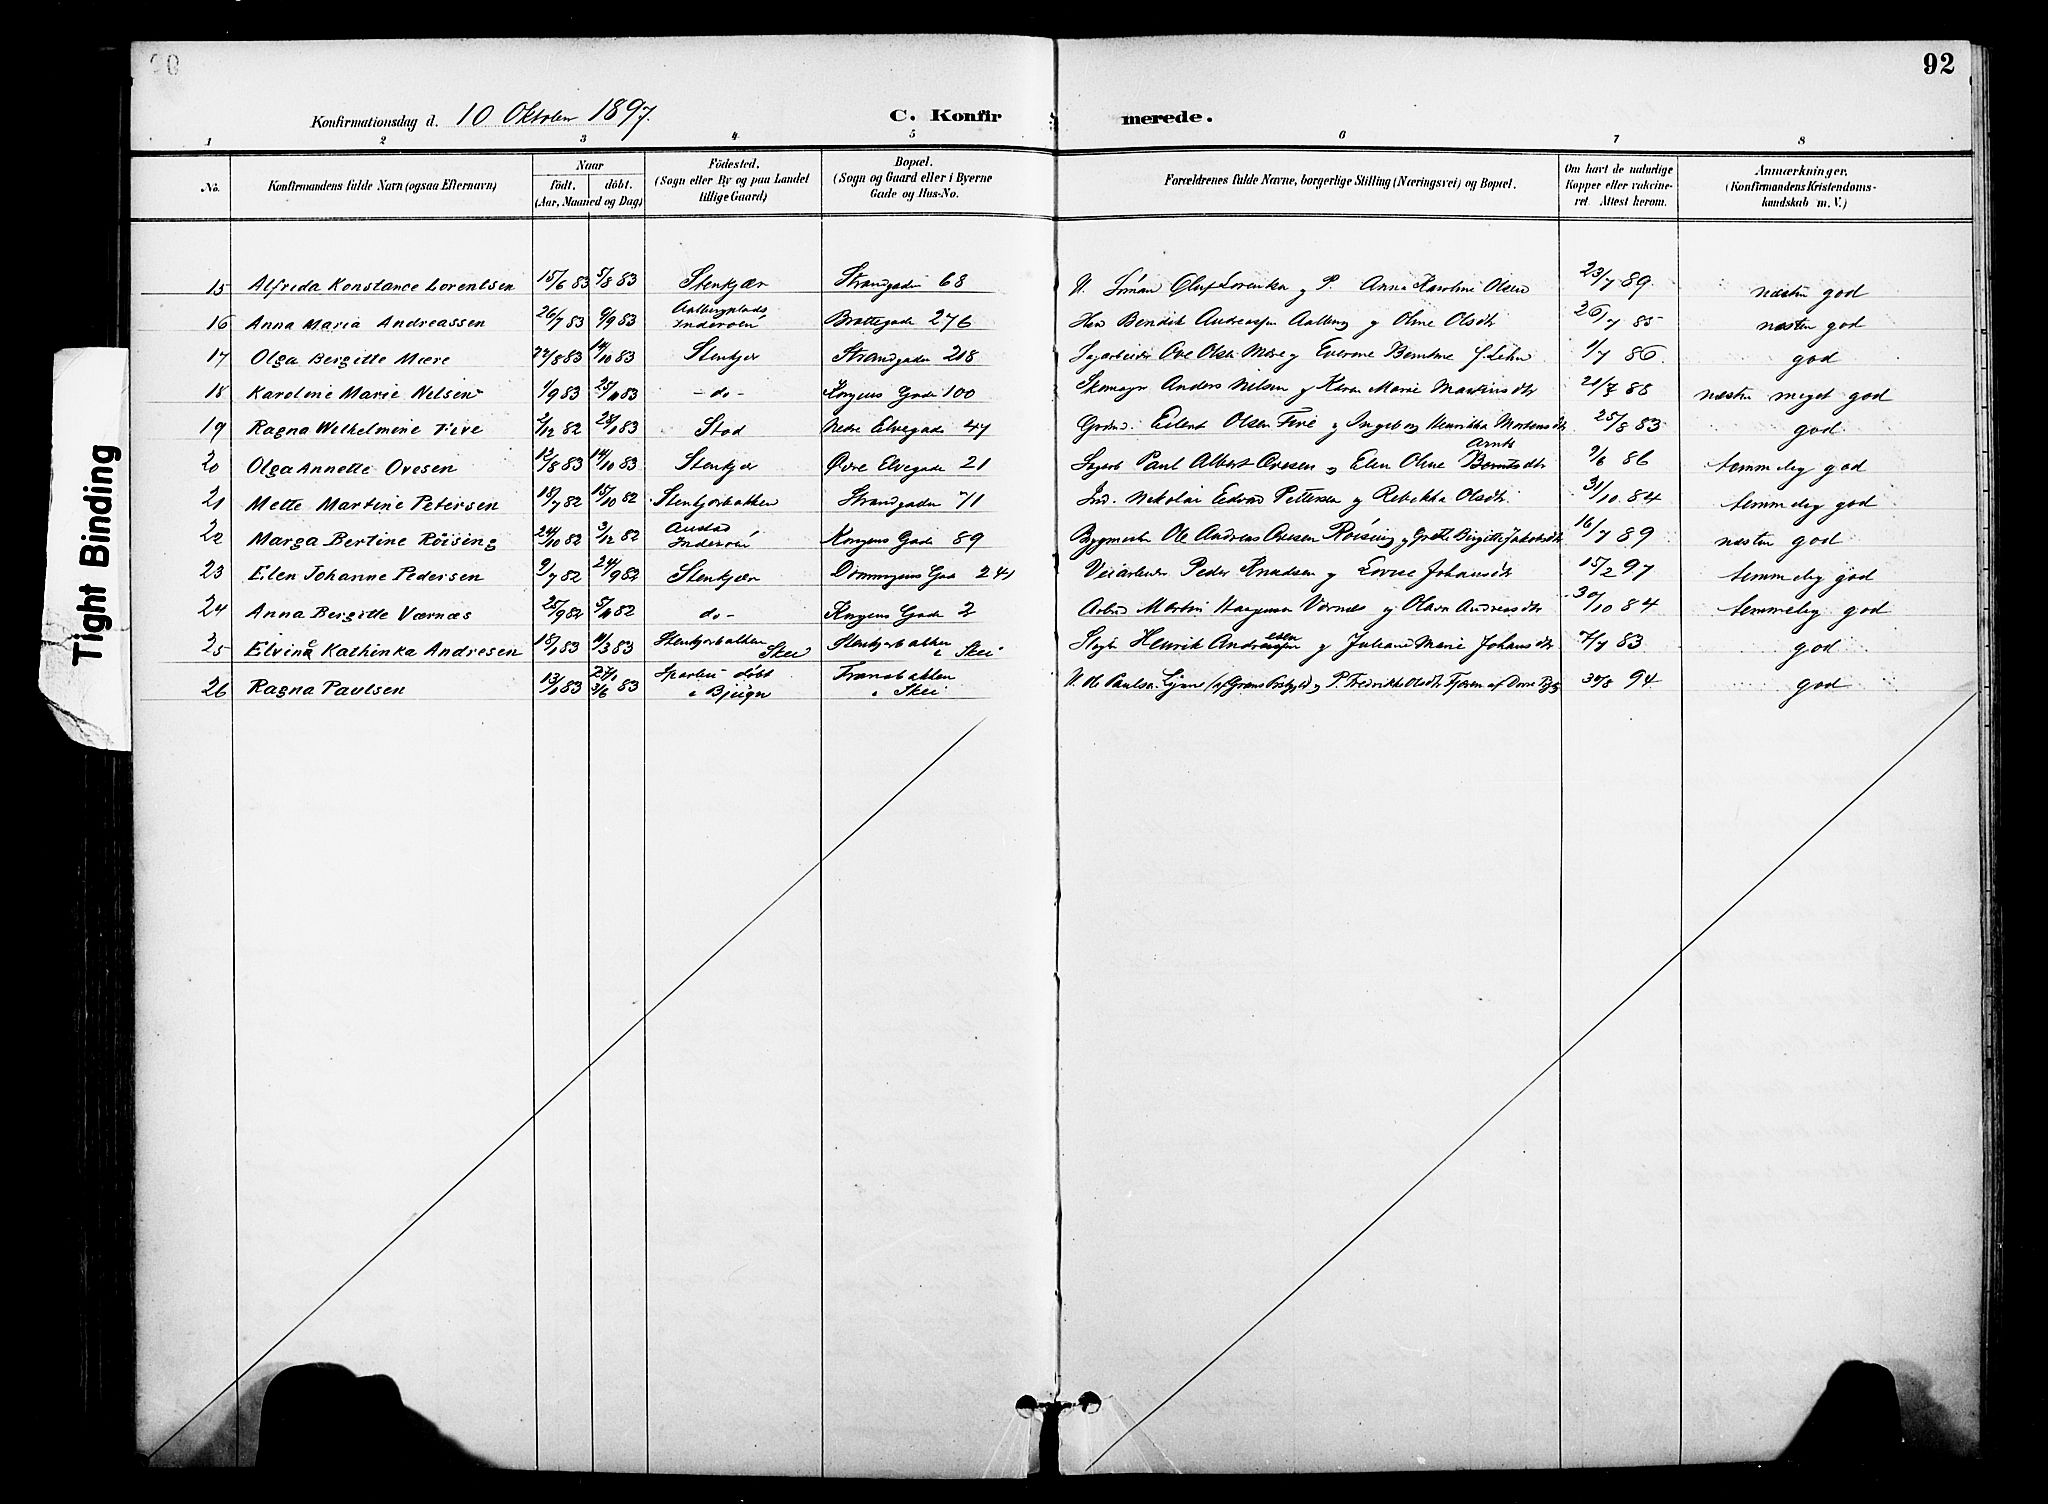 92
Konfirmationsdag d. 10 Oktober 1897.
C. Konfirmerede.
1 2 3 4 5 6 7 8
No. Konfirmandens fulde Navn (ogsaa Efternavn) Naar födt, döbt. (Aar, Maaned og Dag) Födested. (Sogn eller By og paa Landet tillige Gaard) Bopæl. (Sogn og Gaard eller i Byerne Gade og Hus-No. Forældrenes fulde Navne, borgerlige Stilling (Næringsvei) og Bopæl. Om havt de naturlige Kopper eller vakcineret. Attest herom. Anmærkninger. (Konfirmandens Kristendomskundskab m. V.)
15 Alfrida Konstance Lorentsen 15/6 83 5/8 83 Stenkjær Strandgaden 68 Olaf Lorentsen og P. Anna Karoline Olsen 23/7 89 næsten god
16 Anna Maria Andreassen 26/7 83 9/9 83 Aalbergplads Inderøen Brattegade 276 Bendik Andreassen Aalberg og Oline Olsdtr 26/7 85 næsten god
17 Olga Bergitte Mære 22/8 83 14/10 83 Stenkjer Strandgaden 218 Sagarbeider Ove Olsen Mære og Bemtine f. Lehn 1/7 86 god
18 Karoline Marie Nelsen 1/9 83 25/11 83 - do - Kongens Gade 100 Skomager Anders Nilsen og Karen Marie Martinsdtr 21/7 88 næsten meget god
19 Ragna Wilhelmine Five 2/12 82 28/1 83 Stod Nedre Elvegade 47 Eilert Olsen Five og Ingeborg Henrikka Mortensdtr 25/8 83 god
20 Olga Annette Ovesen 12/8 83 14/10 83 Stenkjer Øvre Elvegade 21 Sagarb Paul Albert Ovesen og Elen Oline Berntsdtr Arnts 9/6 86 temmelig god
21 Mette Martine Petersen 18/7 82 15/10 82 Stenkjerbakken Strandgaden 71 Ind. Nikolai Edvard Pettersen og Rebekka Olsdtr 31/10 84 temmelig god
22 Marga Bertine Røising 24/10 82 3/12 82 Austad Inderøen Kongens Gade 89 Bygmester Ole Andreas Ovesen Røising og Grete Birgitte Jakobsdtr 16/7 89 næsten god
23 Elen Johanne Pedersen 9/7 82 24/9 82 Stenkjær Dronningens Gad 241 Veiarbeider Peder Knudsen og Lovise Johansdtr 15/2 97 temmelig god
24 Anna Bergitte Værnæs 25/9 82 5/11 82 do - Kongens Gade 2 Arbeid Martin Værnes og Olava Andreasdtr 30/10 84 temmelig god
25 Elvine Kathinka Andresen 18/1 83 11/3 83 Stenkjerbakken Skei Stenkjerbakken i Skei Henrik Andreassen esen og Juliane Marie Johansdtr 7/7 83 god
26 Ragna Paulsen 13/1 83 27/1 3/6 83 Sparbu døbt i Bjugn Tranabakken i Skei U. Ole Paulsen og P. Fredrikke Olsdtr 30/8 94 god
Tight Binding